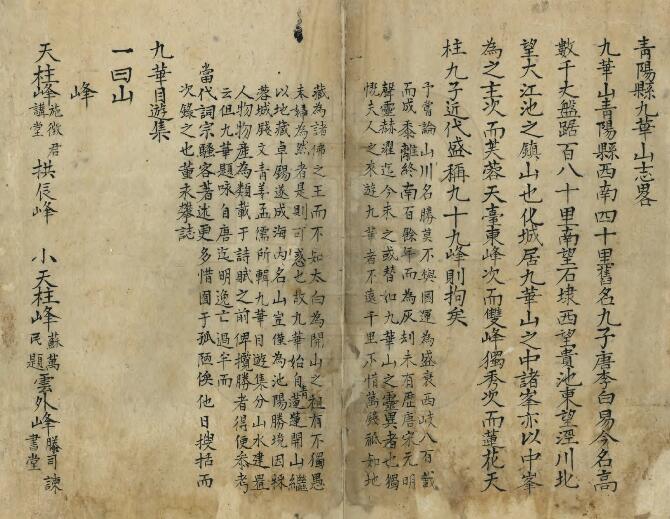 青陽縣九華山志畧
九華山青陽縣西南四十里舊名九子唐李白易今名高
數千丈盤踞百八十里南望石埭西望貴池東望涇川北
望大江池之鎮山也化城居九華山之中諸峯亦以中峯
為之主次而芙蓉天臺東峰次而雙峰獨秀次而蓮花天
柱九子近代盛稱九十九峰則拘矣
予嘗論山川名勝莫不與國運為盛衰西岐八百載
而成黍離終南百餘年而為灰刼未有歷唐宋元明
聲靈赫濯迄今未之或替如九華山之靈異者也獨
慨夫人之來遊九華者不遠千里不惜萬錢祗知地
藏為諸佛之王而不知太白為開山之祖有不獨愚
夫婦為然者是則可惑也故九華始自青蓮開山繼
以地藏卓錫遂成海內名山豈僅為池陽勝境因採
蓉城賤文青華孟儒所輯九華目遊集分山水建置
人物物產為類載于詩賦之前俾攬勝者得便參考
云但九華題咏自唐迄明逸亡過半而
當代詞宗騷客著述更多惜囿于孤陋俟他日搜括而
次錄之也董未攀誌
九華目遊集
一曰山
峰
天柱峰施徵君講堂 拱辰峰 小天柱峰蘇萬民題 雲外峰滕司諫書堂